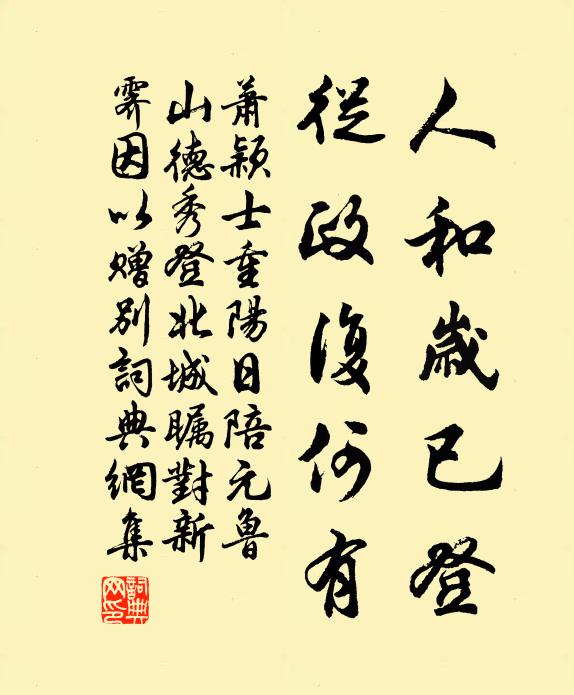 人和歲已登
從政復何有
蕭穎士重陽日陪元魯
山德秀登北城矚對新
霽因以贈別詞典網集
詞典
网印